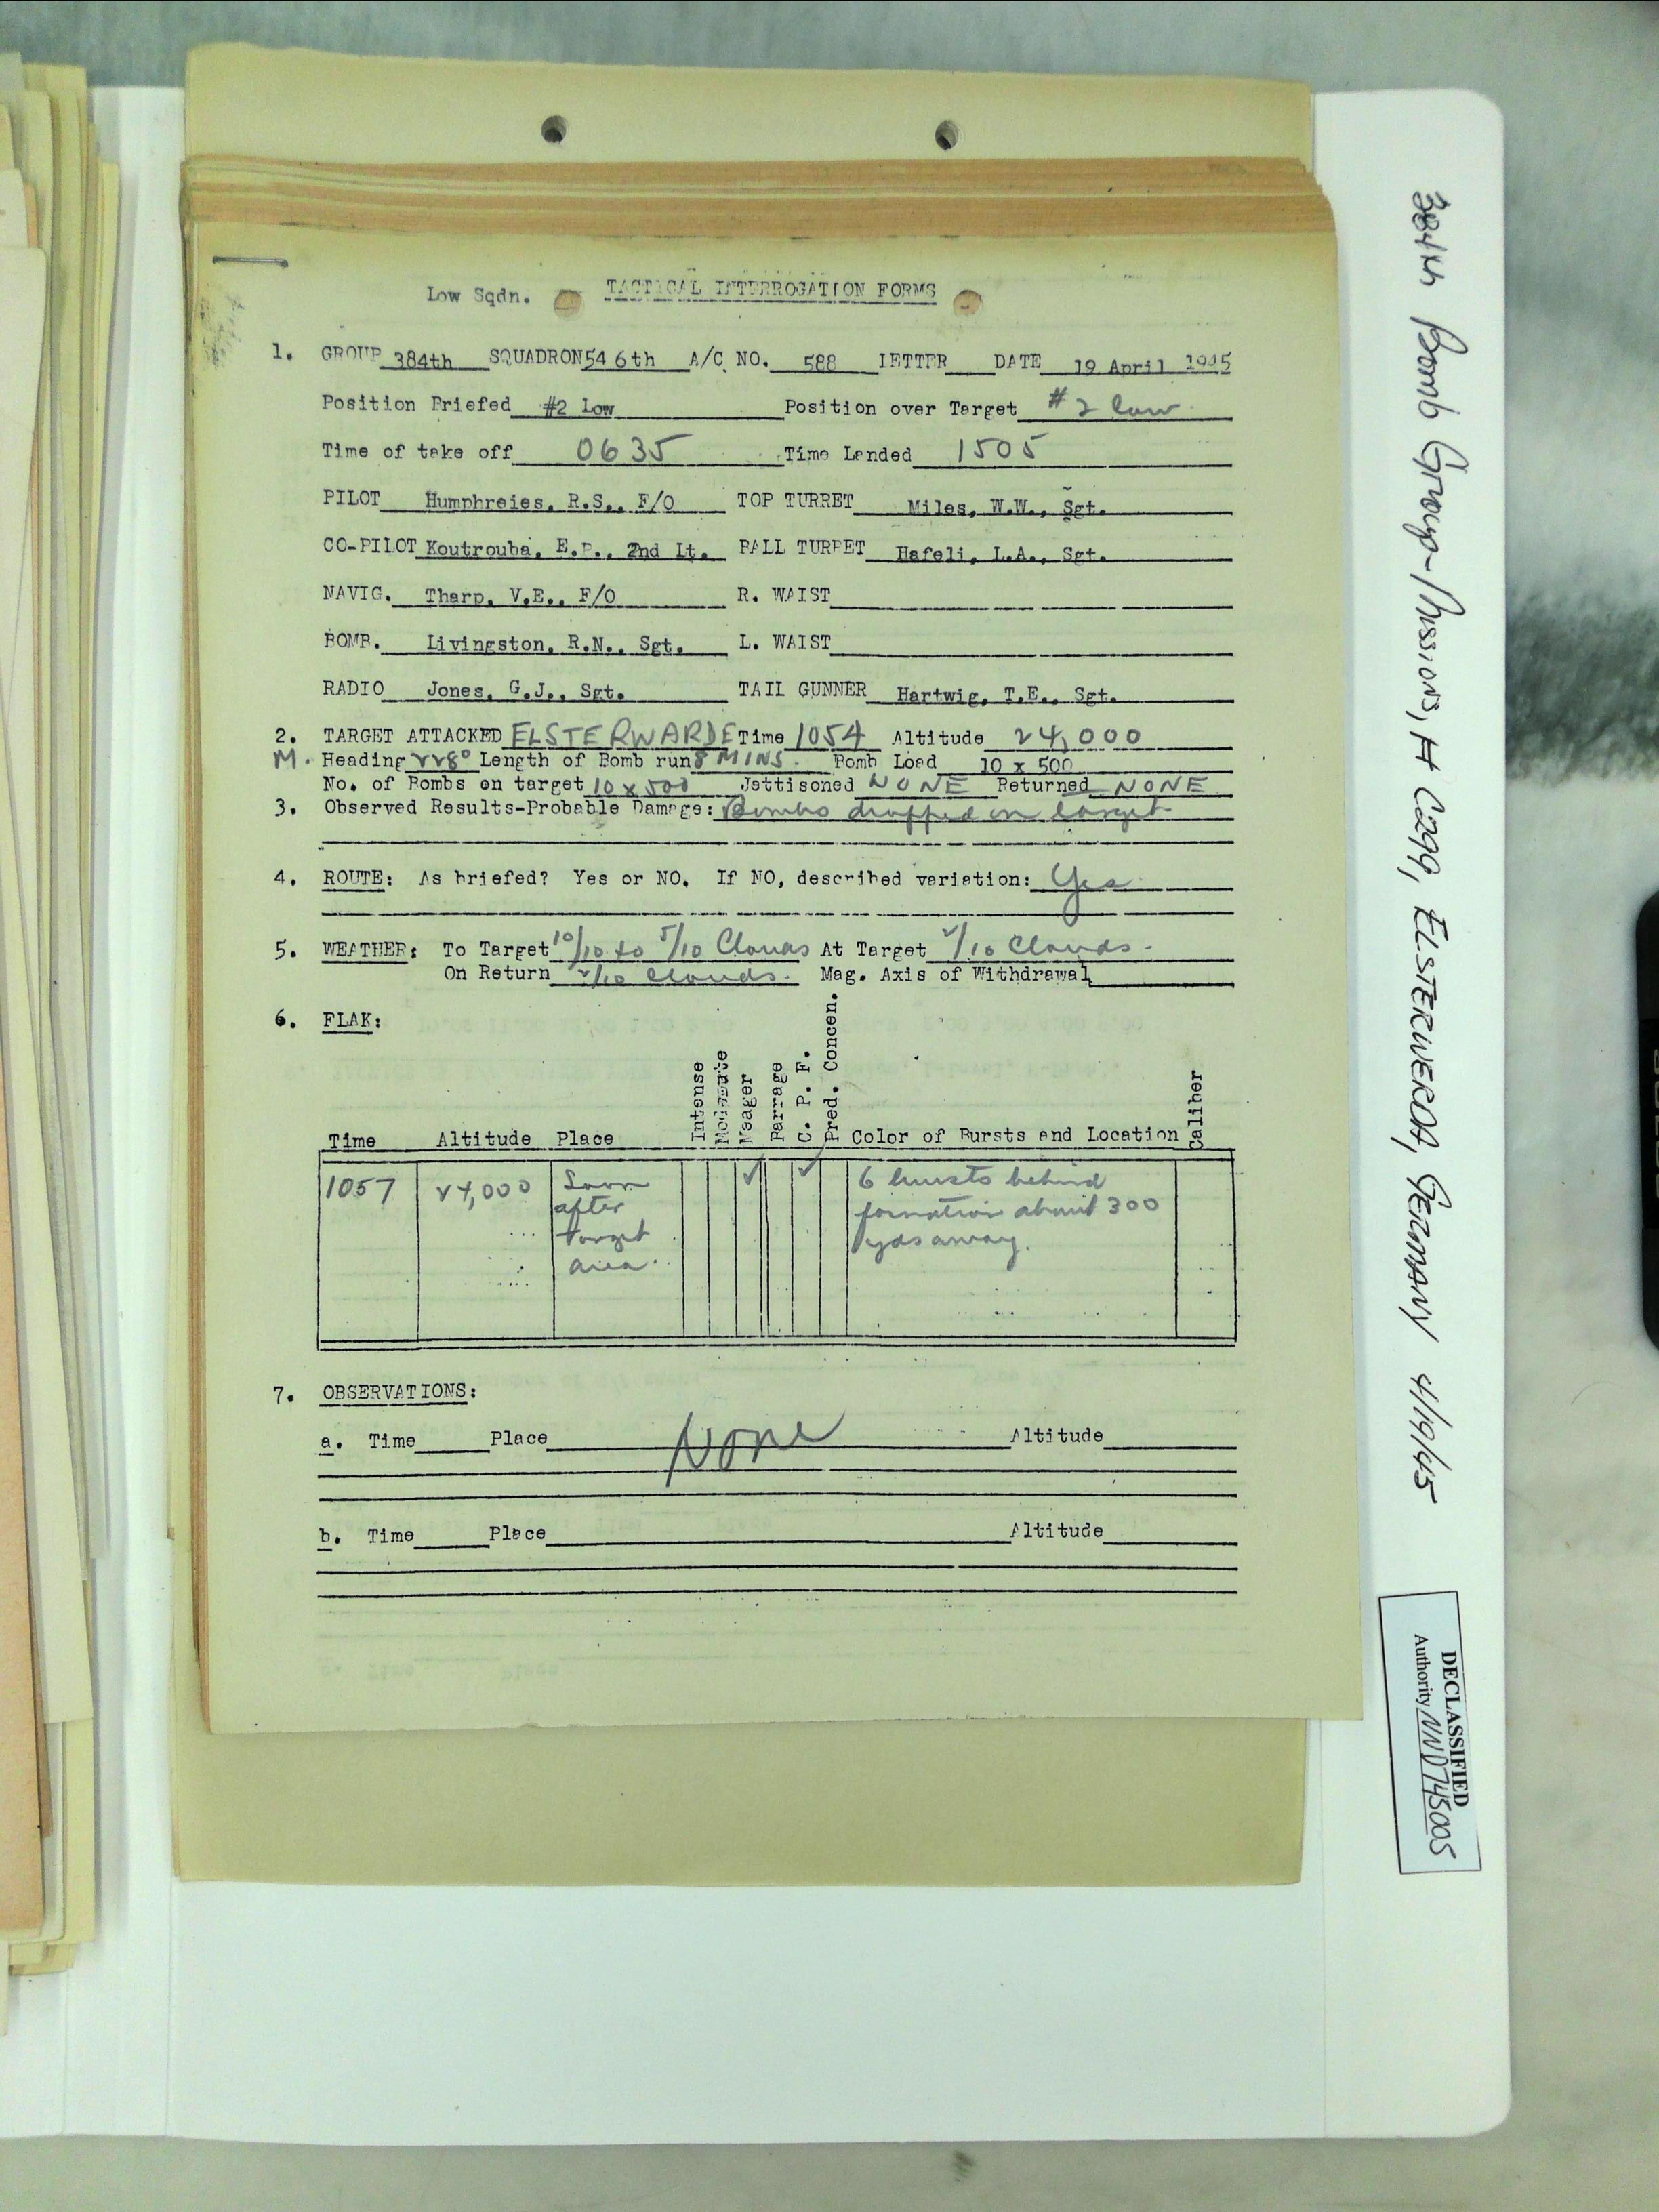 Low Sqdn. TACTICAL INTERROGATION FORMS
1. GROUP 384th SQUADRON 546th A/C NO. 588 LETTER DATE 19 April 1945
Position Briefed #2 Low Position over Target #2 low
Time of take off 0635 Time Landed 1505
PILOT Humphreies, R.S., F/O TOP TURRET Miles, W.W., Sgt.
CO-PILOT Koutrouba, E.P., 2nd Lt. BALL TURRET Hafeli, L.A., Sgt.
NAVIG. Tharp, V.E., F/O R. WAIST
BOMB. Livingston, R.N., Sgt. L. WAIST
RADIO Jones, G.J., Sgt. TAIL GUNNER Hartwig, T.E., Sgt.
2. TARGET ATTACKED ELSTERWARDE Time 1054 Altitude 24,000
M. Heading 228° Length of Bomb run 8 MINS. Bomb Load 10 x 500
No. of Bombs on target 10 x 500 Jettisoned NONE Returned NONE
3. Observed Results-Probable Damage: Bombs dropped on target
4. ROUTE: As briefed? Yes or NO. If NO, described variation: Yes
5. WEATHER: To Target 10/10 to 5/10 Clouds At Target 2/10 Clouds.
On Return 2/10 Clouds. Mag. Axis of Withdrawal
6. FLAK:
Time Altitude Place Intense Moderate Meager Barrage C. P. F. Pred. Concen. Color of Bursts and Location Caliber
1057 24,000 Soon ✓ ✓ 6 bursts behind
after formation about 300
target yds away.
area.
7. OBSERVATIONS:
a. Time Place None Altitude
b. Time Place Altitude
384th Bomb Group-Missions, # C299, ELSTERWERDA, GERMANY 4/19/45
DECLASSIFIED
Authority NND745005